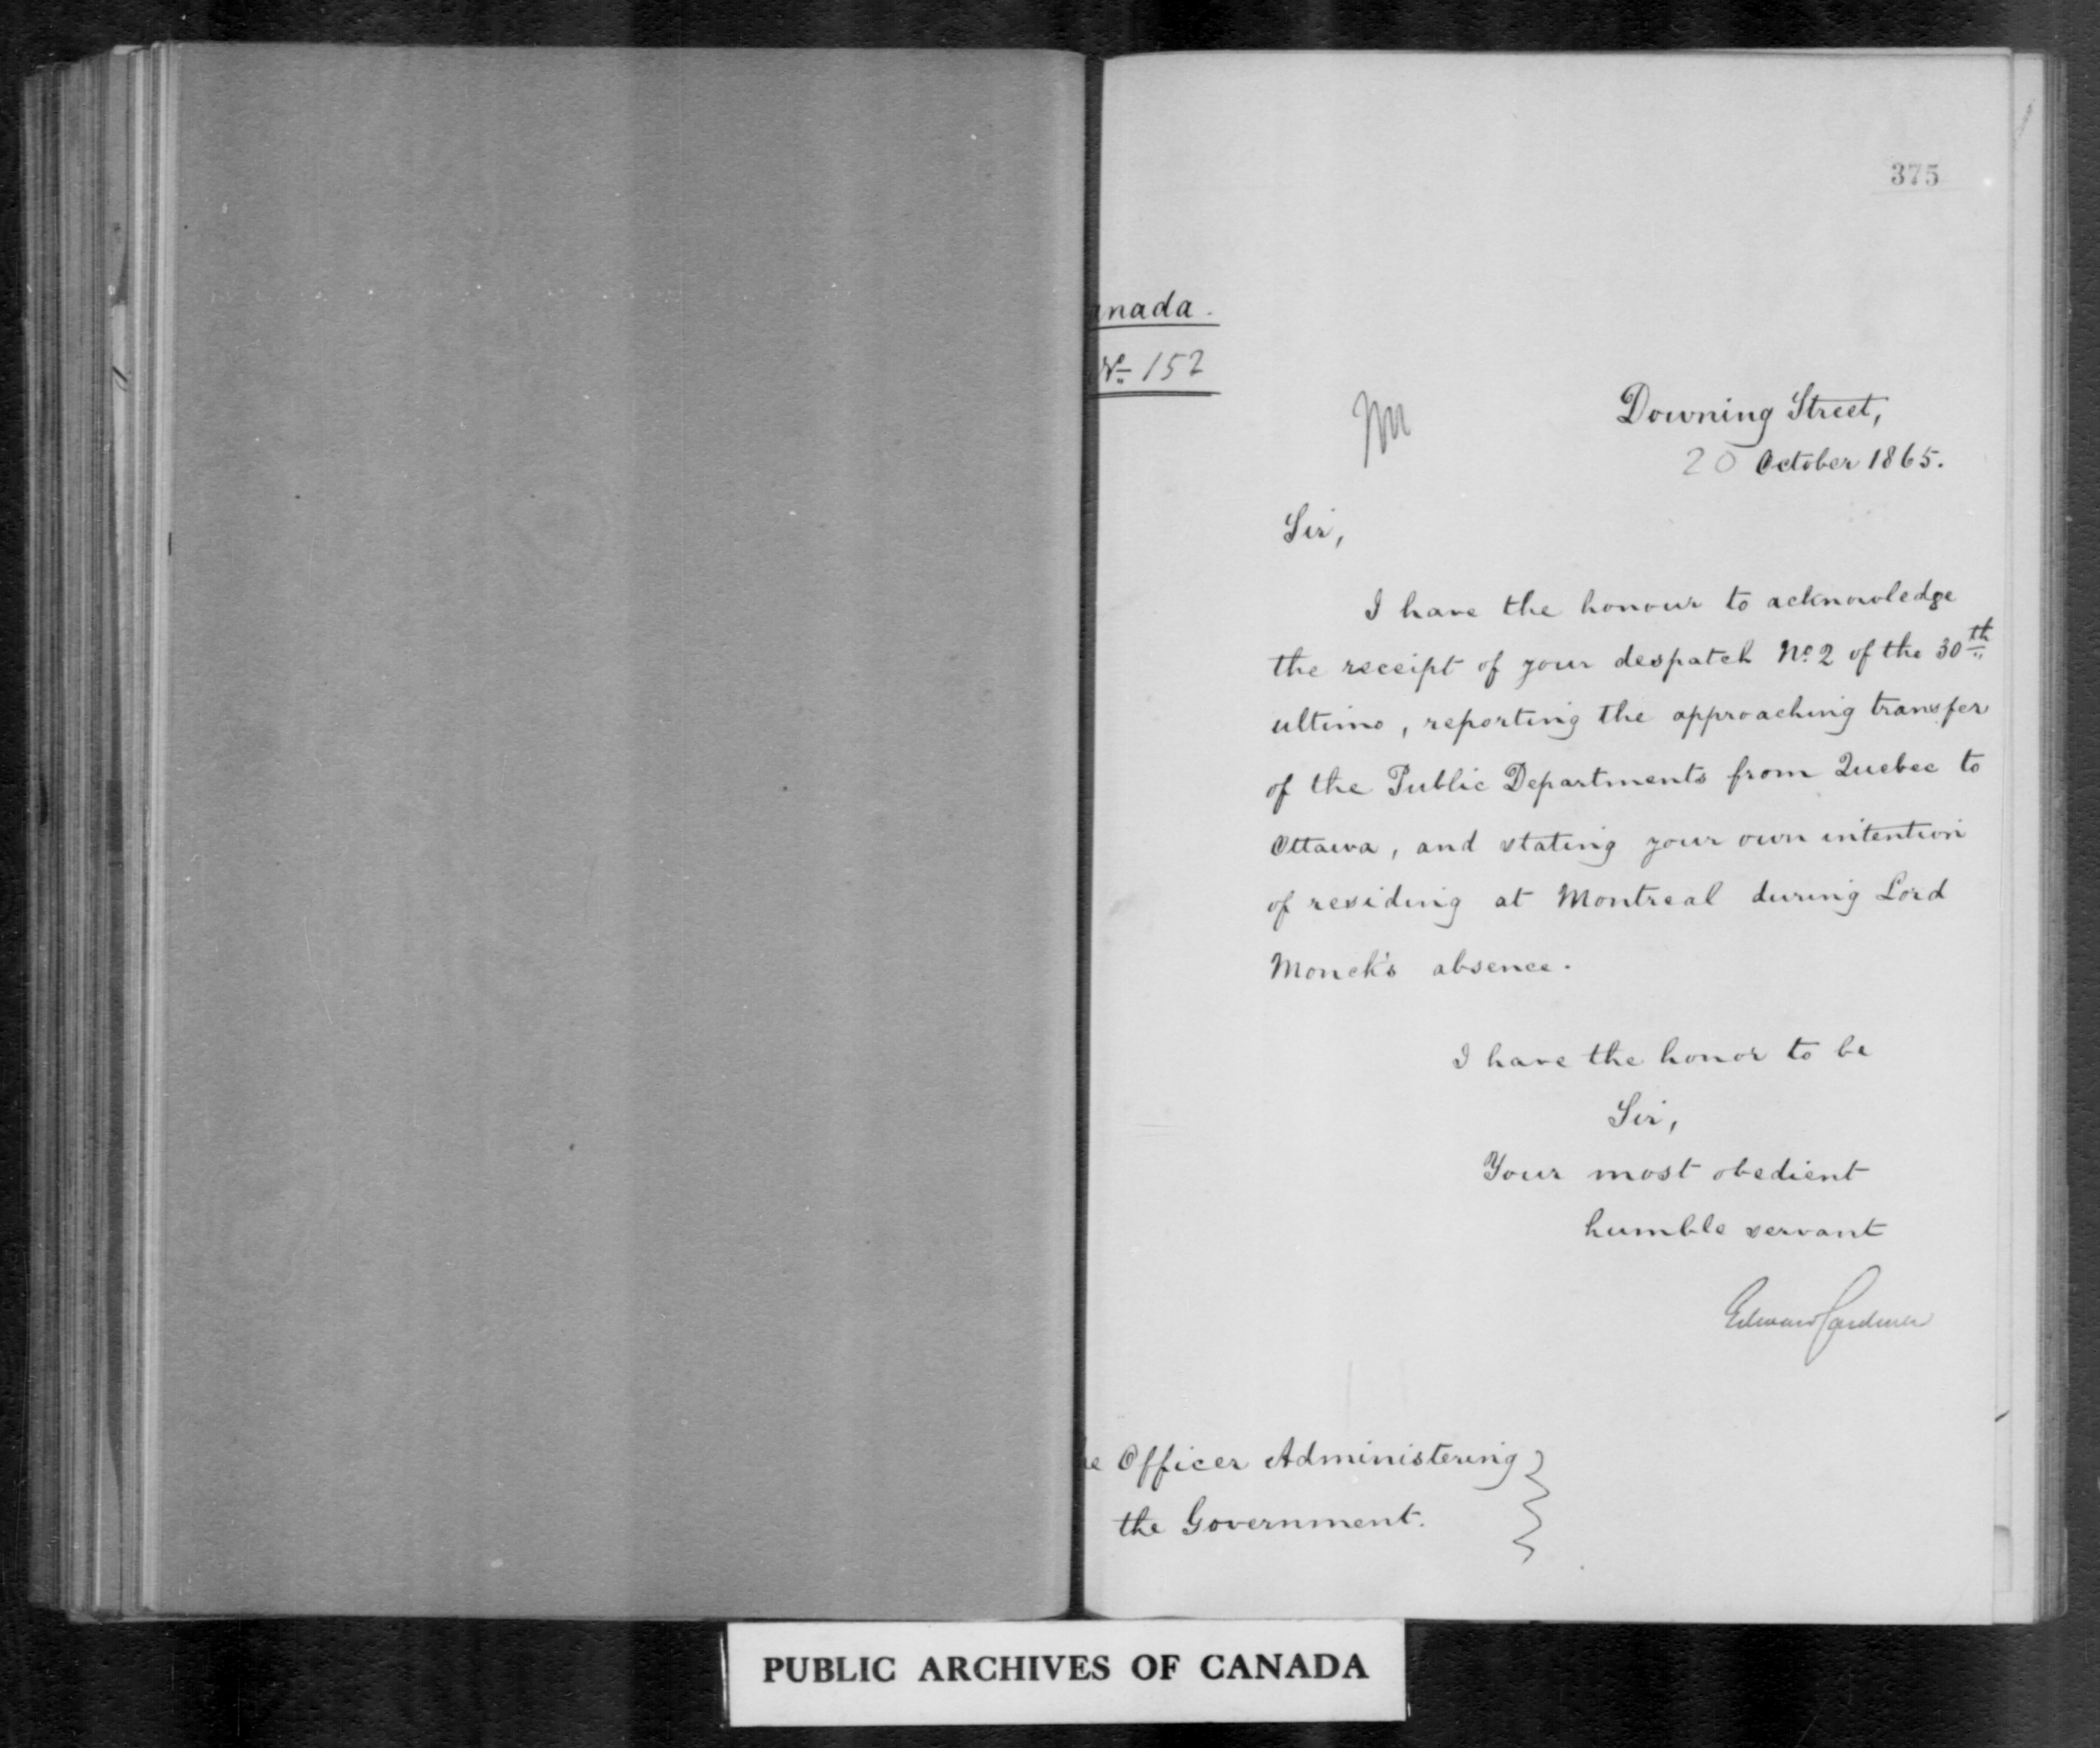 375
anada.
No. 152
M
Downing Street,
20 October 1865.
Sir,
I have the honour to acknowledge
the receipt of your despatch No. 2 of the 30th
ultimo, reporting the approaching transfer
of the Public Departments from Quebec to
Ottawa, and stating your own intention
of residing at Montreal during Lord
Monck's absence.
I have the honor to be
Sir,
Your most obedient
humble servant
Edward Cardwell
he Officer Administering
the Government.
PUBLIC ARCHIVES OF CANADA